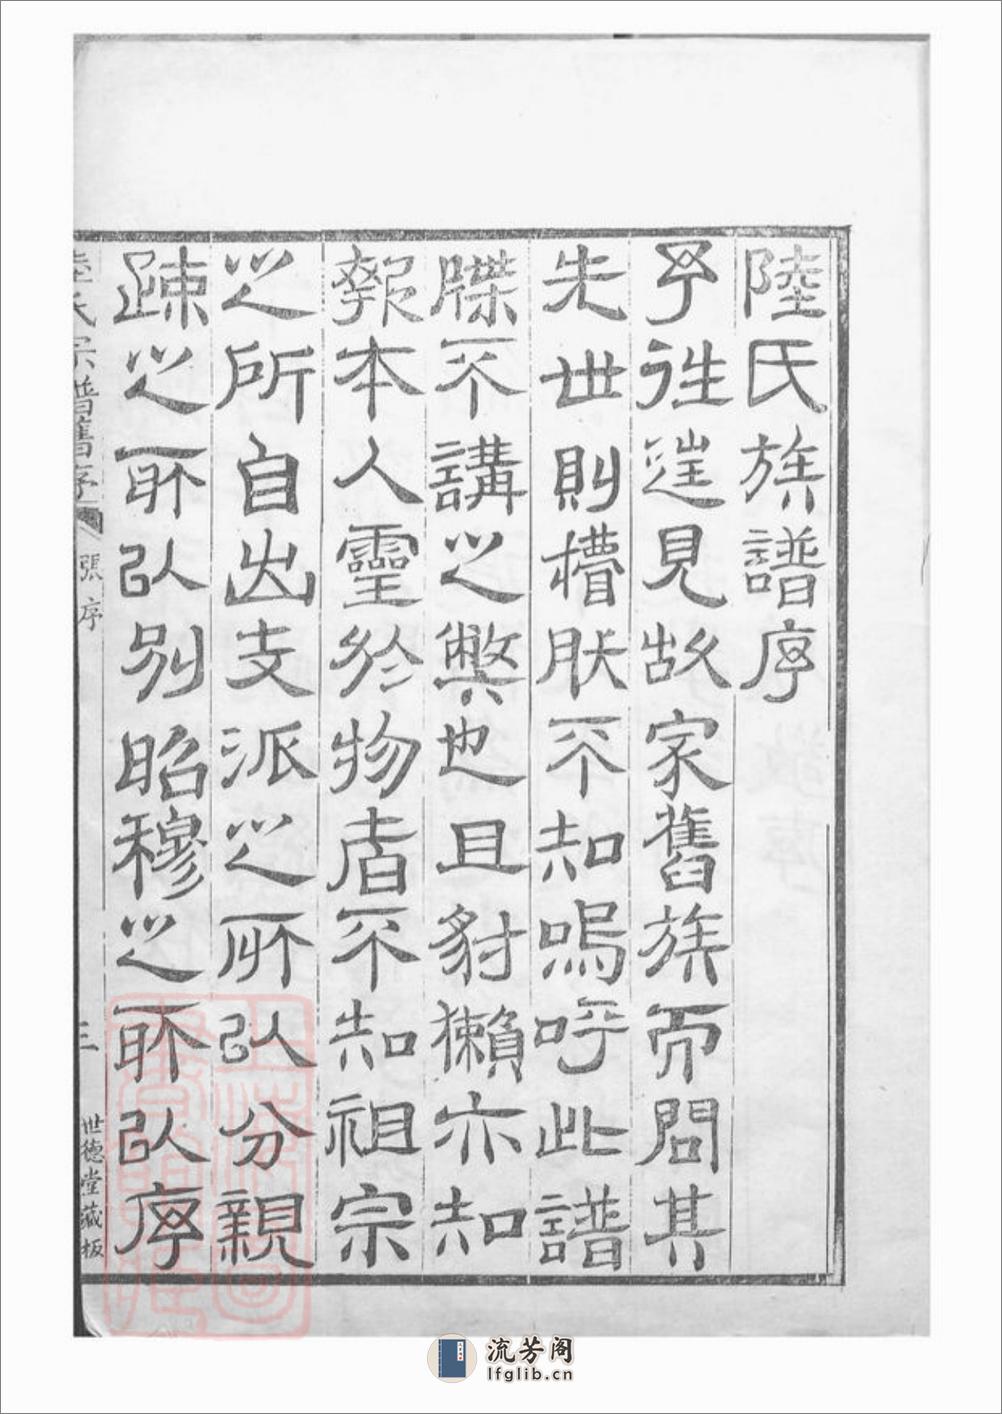 陸氏族譜序
予徃𨓏見故家舊族而問其
先世則懵肰不知嗚呼此譜
牒不講之獘也且豺獺亦知
報本人靈於物者不知祖宗
之所自出支派之所㠯分親
疎之所㠯別昭穆之所㠯序
陸氏宗譜舊序
張序
三
世德堂藏板
流芳阁
lfglib.cn